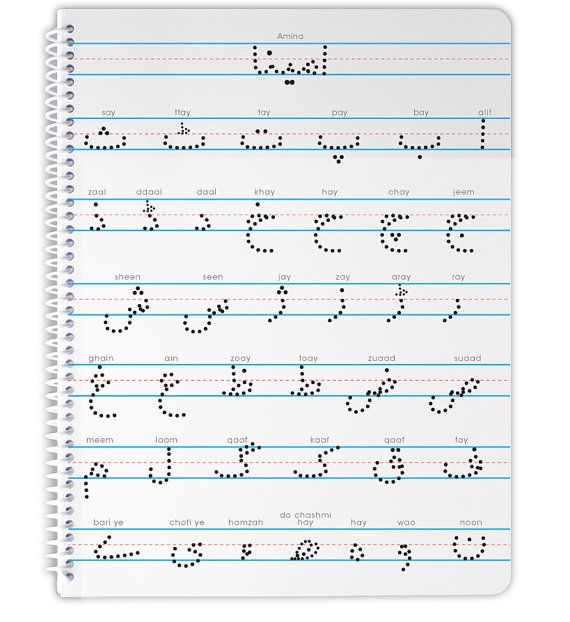 Amina
امینا
say ttay tay pay bay alif
ا ب پ ت ٹ ث
zaal ddaal daal khay hay chay jeem
ج چ ح خ د ڈ ذ
sheen seen jay zay aray ray
ر ڑ ز ژ س ش
ghain ain zoay toay zuaad suaad
ص ض ط ظ ع غ
meem laam qaaf kaaf qaaf fay
ف ق ک گ ل م
bari ye choti ye hamzah do chashmi hay hay wao noon
ن و ہ ھ ء ی ے